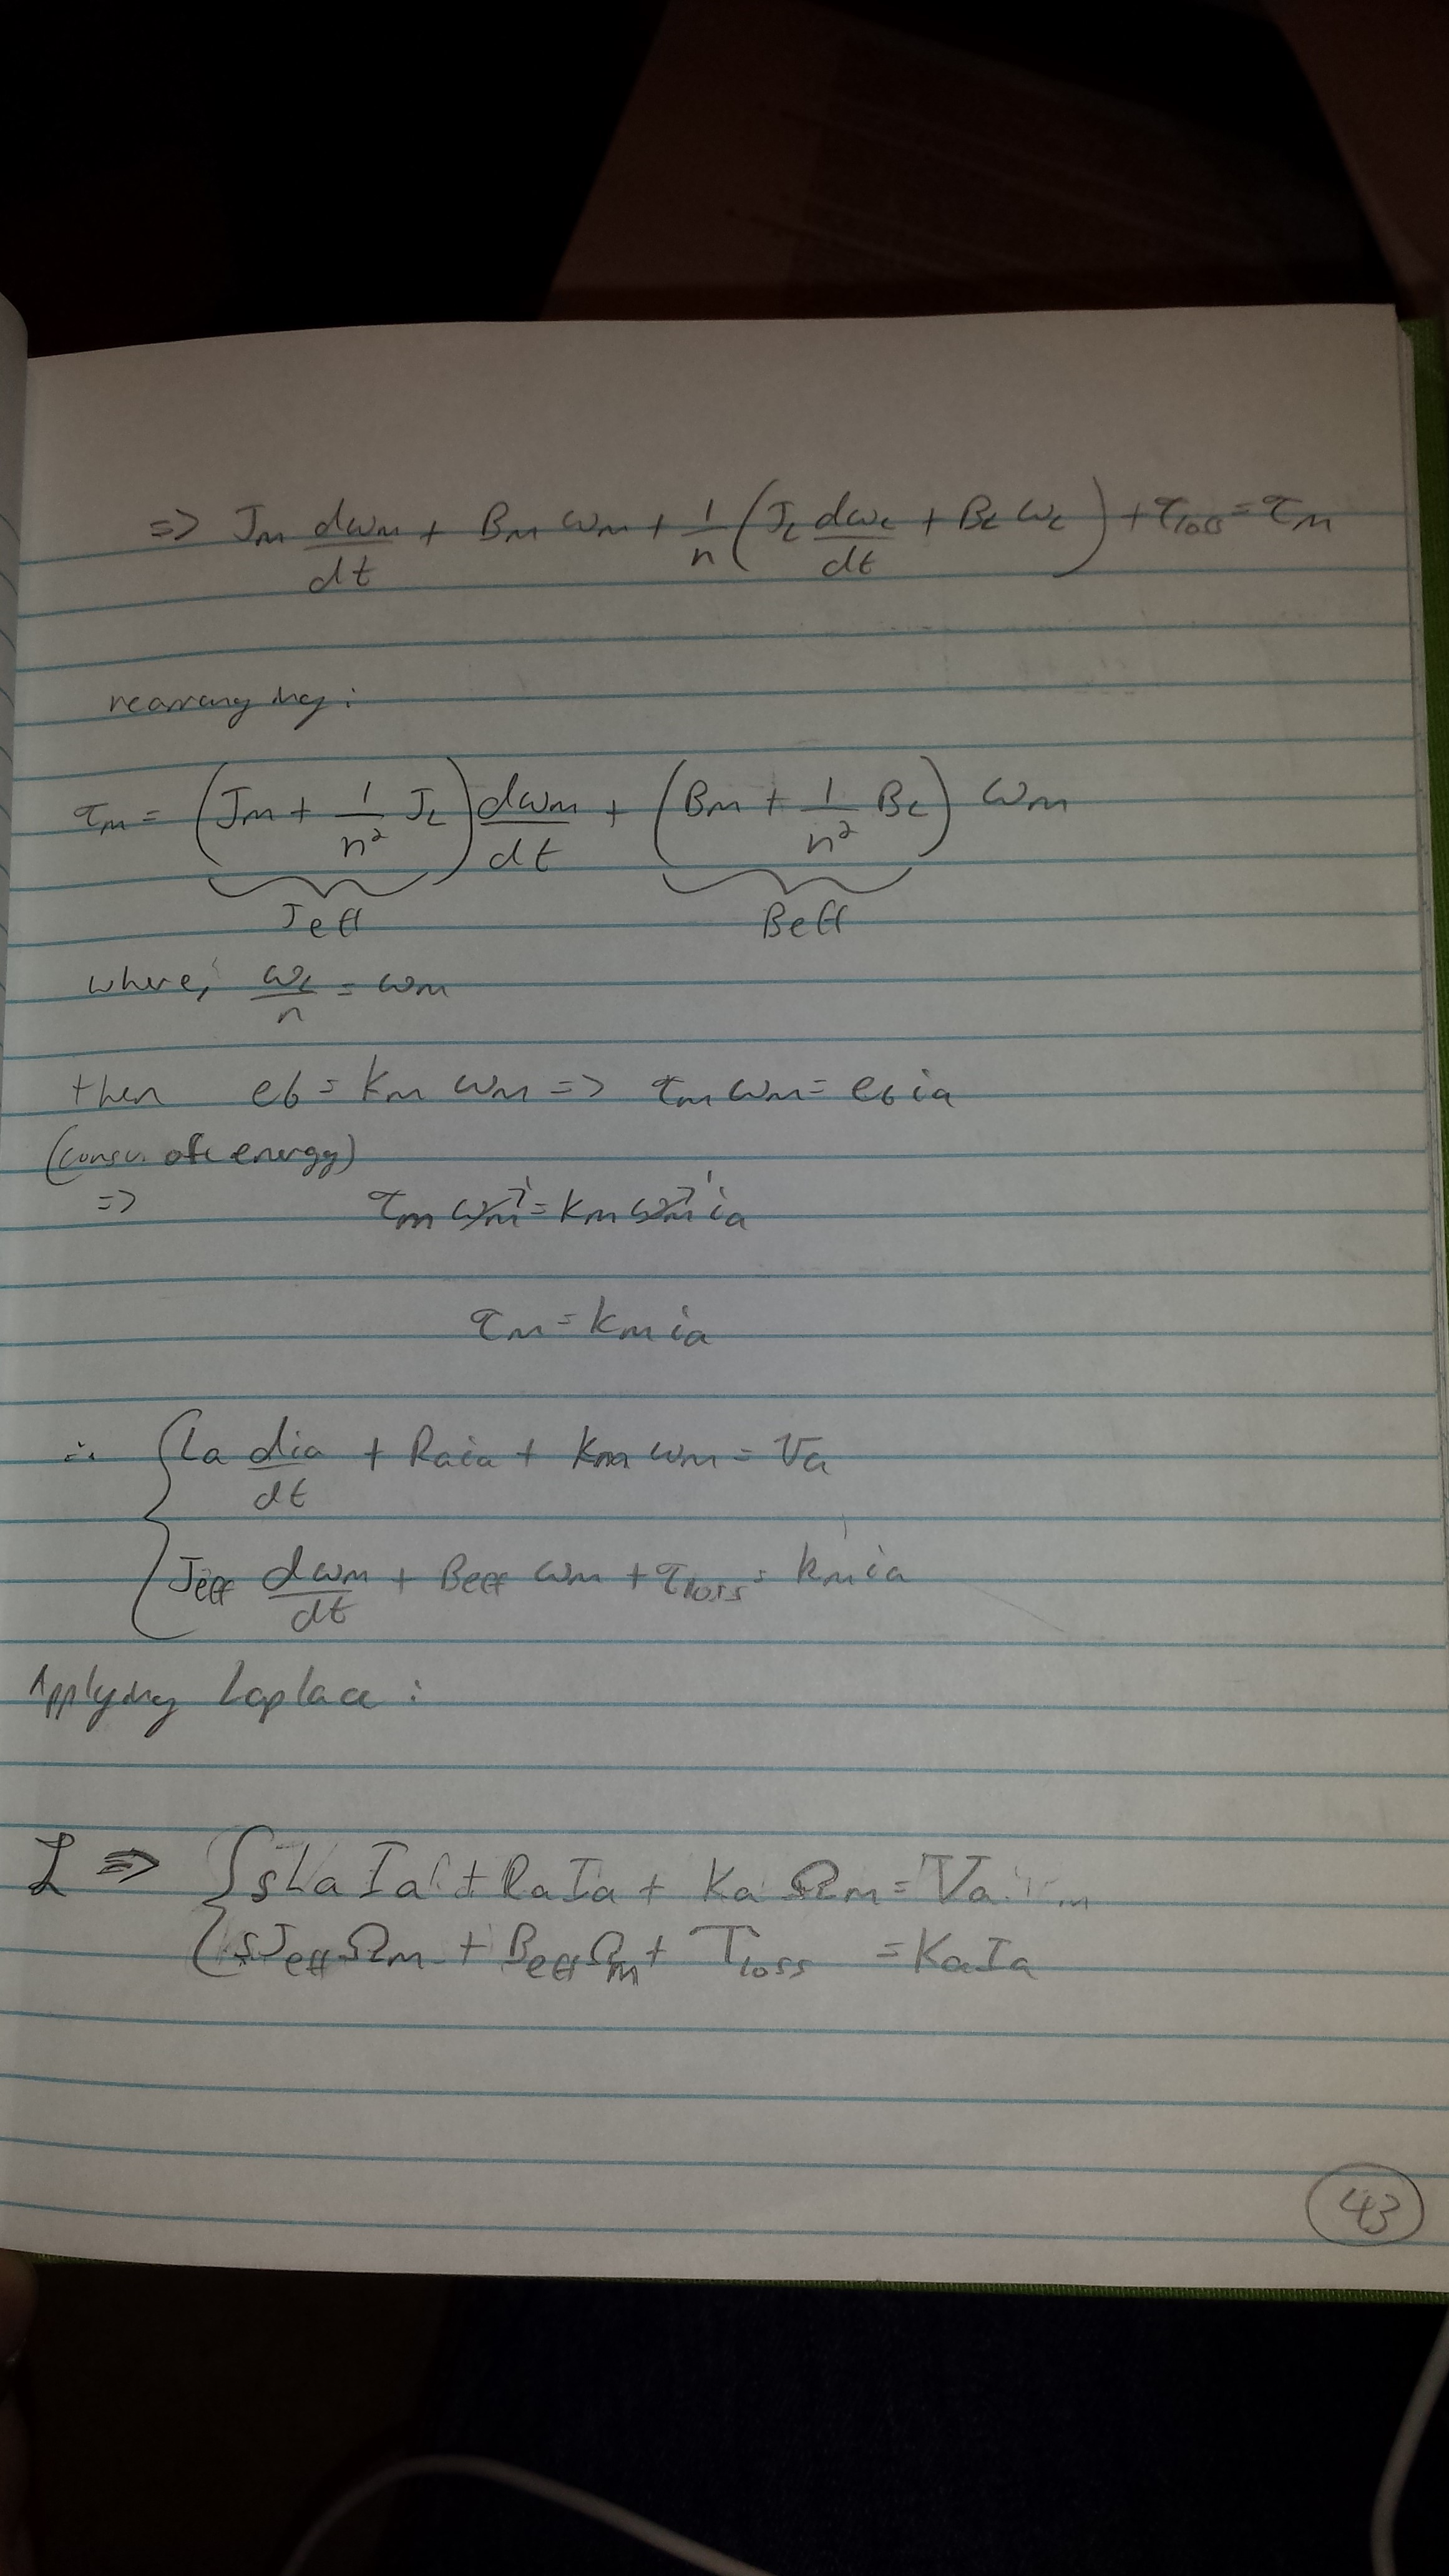 => Jm dωm/dt + Bm ωm + 1/n (JL dωL/dt + BL ωL) + τloss = τm
rearranging:
τm = (Jm + 1/n² JL) dωm/dt + (Bm + 1/n² BL) ωm
Jeff Beff
where, ωL/n = ωm
then eb = km ωm => τm ωm = eb ia
(consv. of energy)
=> τm ωm = km ωm ia
τm = km ia
∴ { La dia/dt + Raia + km ωm = Va
Jeff dωm/dt + Beff ωm + τloss = km ia
Applying Laplace:
ℒ => { sLa Ia + RaIa + Ka Ωm = Va
sJeffΩm + BeffΩm + Tloss = KaIa
43